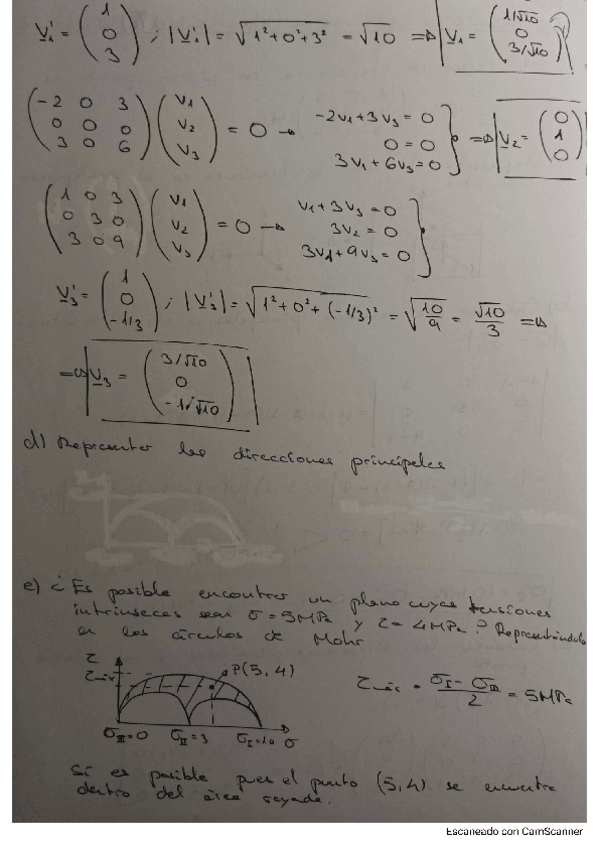 v₁' = (1 0 3) ; |v₁'| = √(1²+0²+3²) = √10 ⇒ v₁ = (1/√10 0 3/√10)
(-2 0 3 / 0 0 0 / 3 0 6) (v₁ v₂ v₃) = 0 → -2v₁+3v₃ = 0 / 0 = 0 / 3v₁+6v₃ = 0 } ⇒ v₂ = (0 1 0)
(1 0 3 / 0 3 0 / 3 0 9) (v₁ v₂ v₃) = 0 → v₁+3v₃ = 0 / 3v₂ = 0 / 3v₁+9v₃ = 0 }
v₃' = (1 0 -1/3) ; |v₃'| = √(1²+0²+(-1/3)²) = √(10/9) = √10/3 ⇒
⇒ v₃ = (3/√10 0 -1/√10)
d) Representar las direcciones principales
e) ¿Es posible encontrar un plano cuyas tensiones
intrínsecas sean σ = 5MPa y τ = 4MPa? Representándolo
en los círculos de Mohr
τ
τmáx
P(5,4)
τmáx = (σI - σIII)/2 = 5MPa
σIII=0 σII=3 σI=10 σ
Sí es posible pues el punto (5,4) se encuentra
dentro del área rayada.
Escaneado con CamScanner